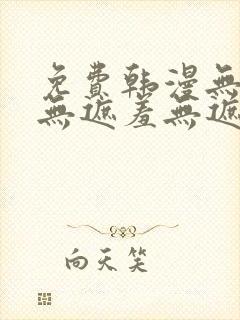 免費韩漫無
無遮羞無遮
向天笑